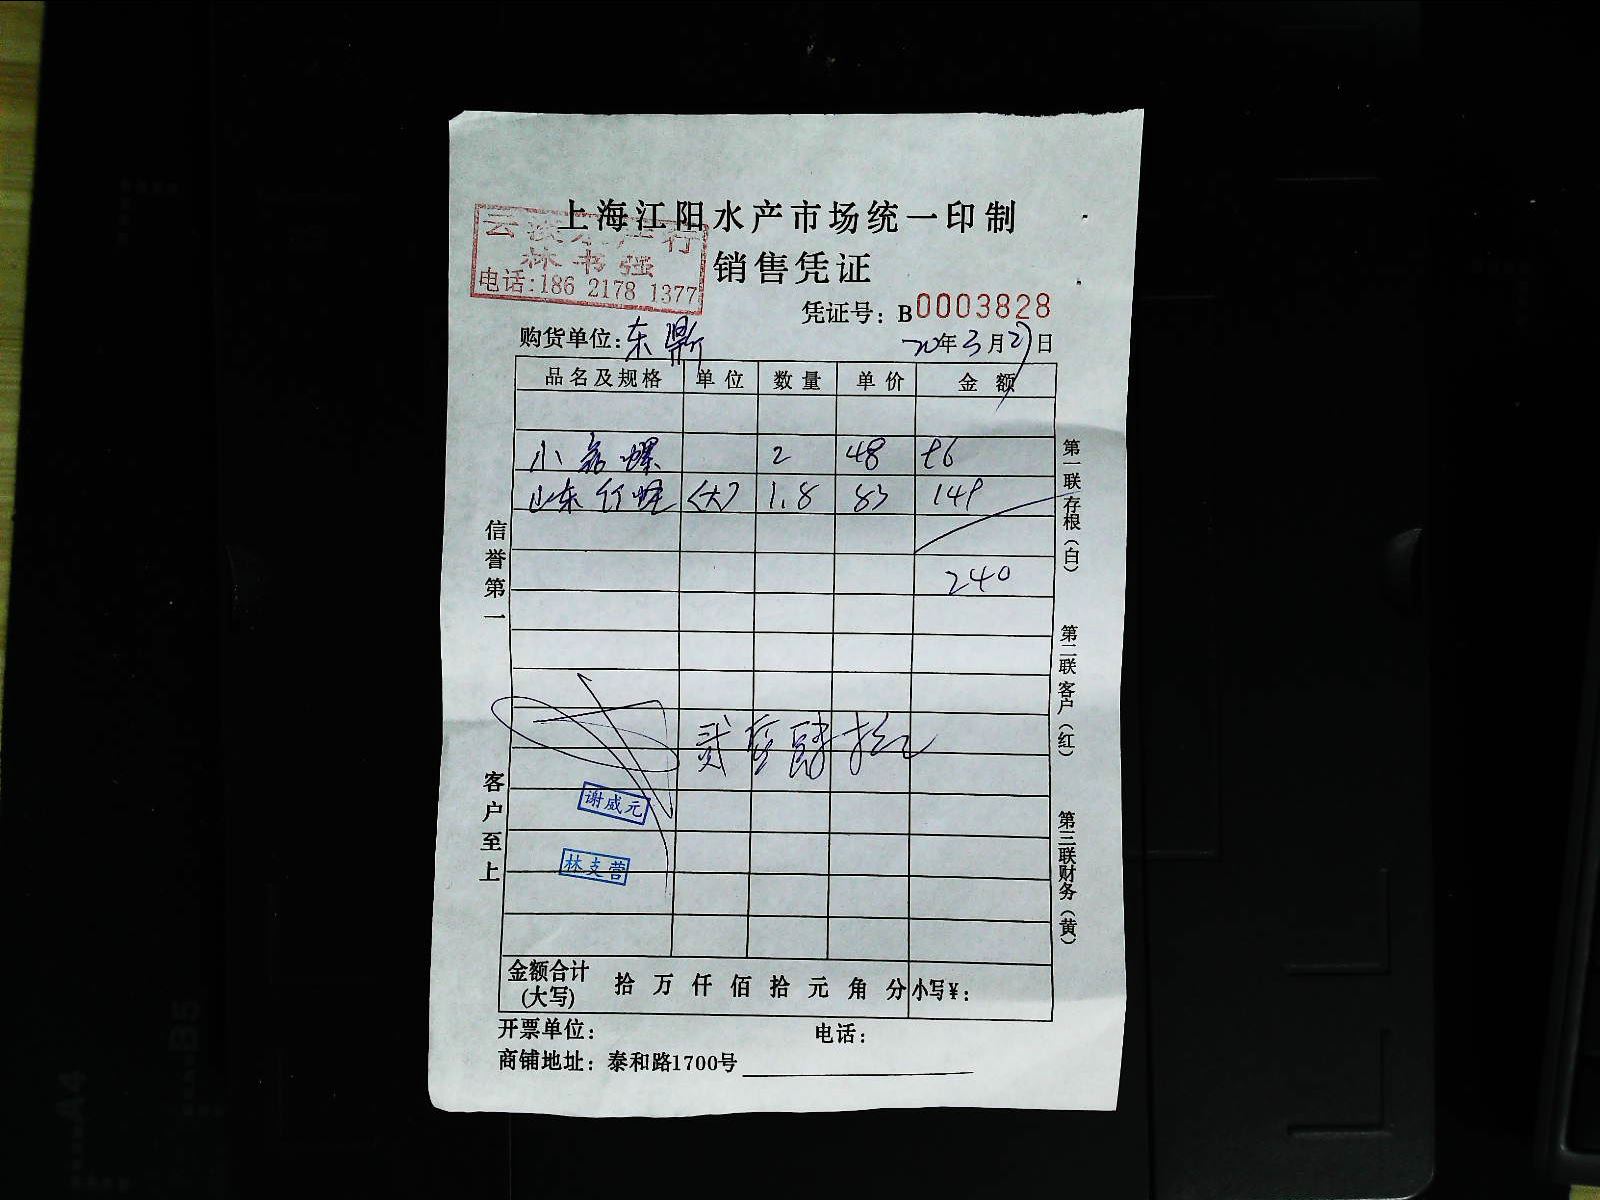 上海江阳水产市场统一印制
云 水产行
林书强
电话:186 2178 1377
销售凭证
凭证号: B0003828
购货单位: 东鼎 20年3月27日
品名及规格 单位 数量 单价 金额
小 螺 2 48 96
山东 (大) 1.8 83 149
240
贰佰肆拾元
谢威元
林支营
金额合计(大写) 拾 万 仟 佰 拾 元 角 分 小写¥:
开票单位: 电话:
商铺地址: 泰和路1700号
信誉第一
客户至上
第一联 存根(白)
第二联 客户(红)
第三联 财务(黄)